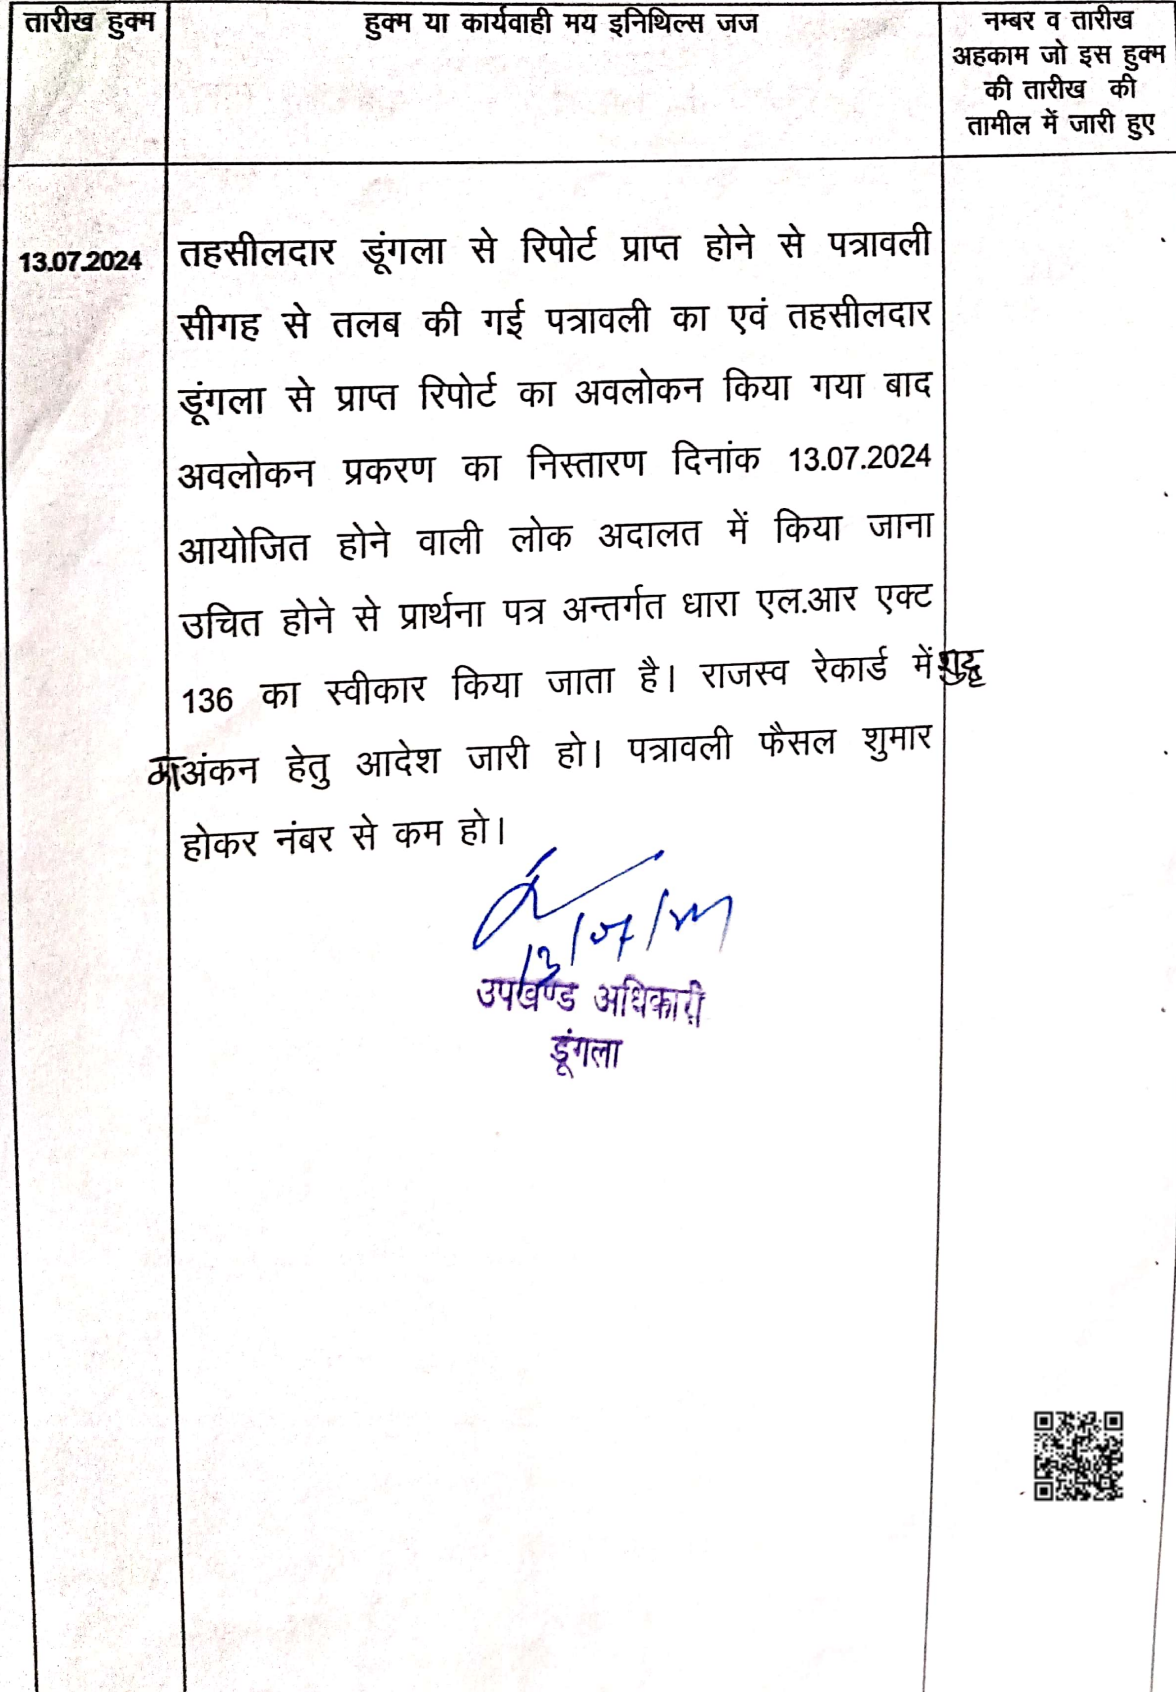 तारीख हुक्म
हुक्म या कार्यवाही मय इनिथिल्स जज
नम्बर व तारीख
अहकाम जो इस हुक्म
की तारीख की
तामील में जारी हुए
13.07.2024
तहसीलदार डूंगला से रिपोर्ट प्राप्त होने से पत्रावली
सीगह से तलब की गई पत्रावली का एवं तहसीलदार
डूंगला से प्राप्त रिपोर्ट का अवलोकन किया गया बाद
अवलोकन प्रकरण का निस्तारण दिनांक 13.07.2024
आयोजित होने वाली लोक अदालत में किया जाना
उचित होने से प्रार्थना पत्र अन्तर्गत धारा एल.आर एक्ट
136 का स्वीकार किया जाता है। राजस्व रेकार्ड में शुद्ध
अंकन हेतु आदेश जारी हो। पत्रावली फैसल शुमार
होकर नंबर से कम हो।
उपखण्ड अधिकारी
डूंगला